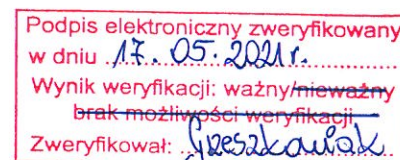 Podpis elektroniczny zweryfikowany
w dniu 17. 05. 2021r.
Wynik weryfikacji: ważny/nieważny
brak możliwości weryfikacji
Zweryfikował: Grzeszkowiak